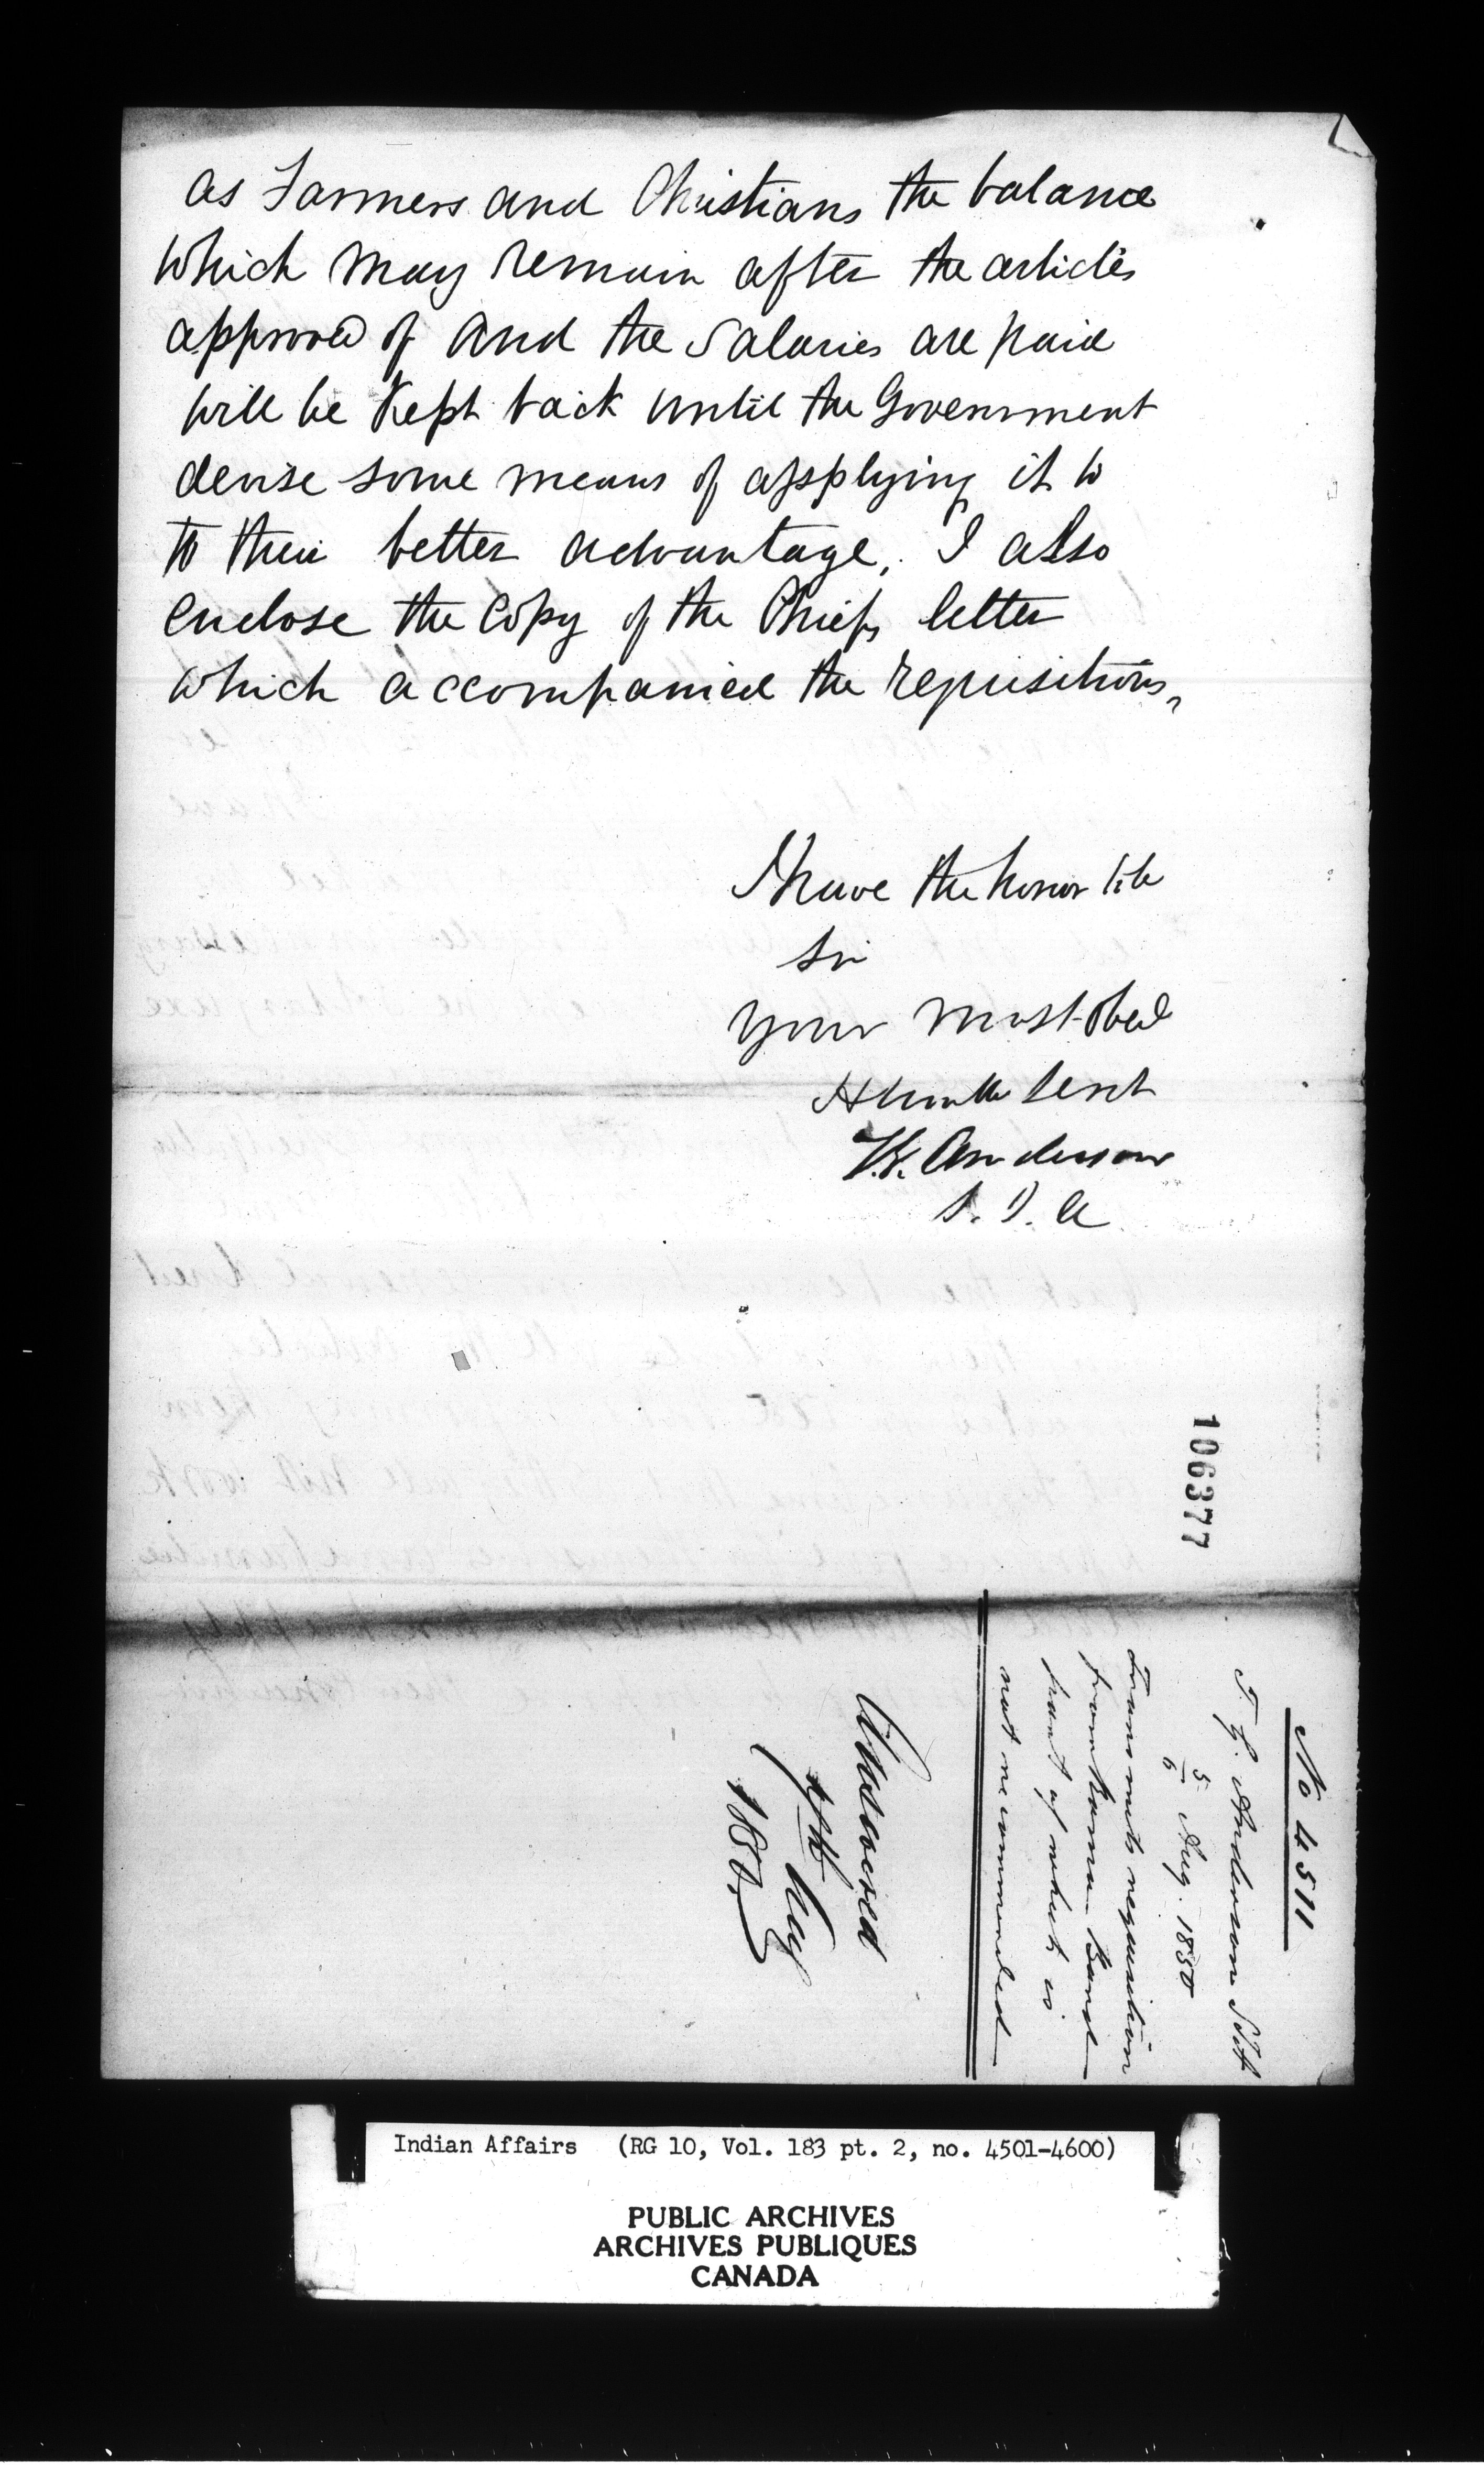 as Farmers and Christians the balance
which may remain after the articles
approved of and the Salaries are paid
will be Kept back until the Government
devise some means of applying it to
to their better advantage, I also
enclose the Copy of the Chiefs letter
which accompanied the requisitions,
I have the honor to be
Sir
Your Most Obed
Humble Servt
T.G. Anderson
S. I. A
106377
No 4511
T. G. Anderson SIA
5/6 Aug. 1850
Transmits requisition
from Rama Band
part of which is
not recommended
Answered
Aug
185
Indian Affairs (RG 10, Vol. 183 pt. 2, no. 4501-4600)
PUBLIC ARCHIVES
ARCHIVES PUBLIQUES
CANADA